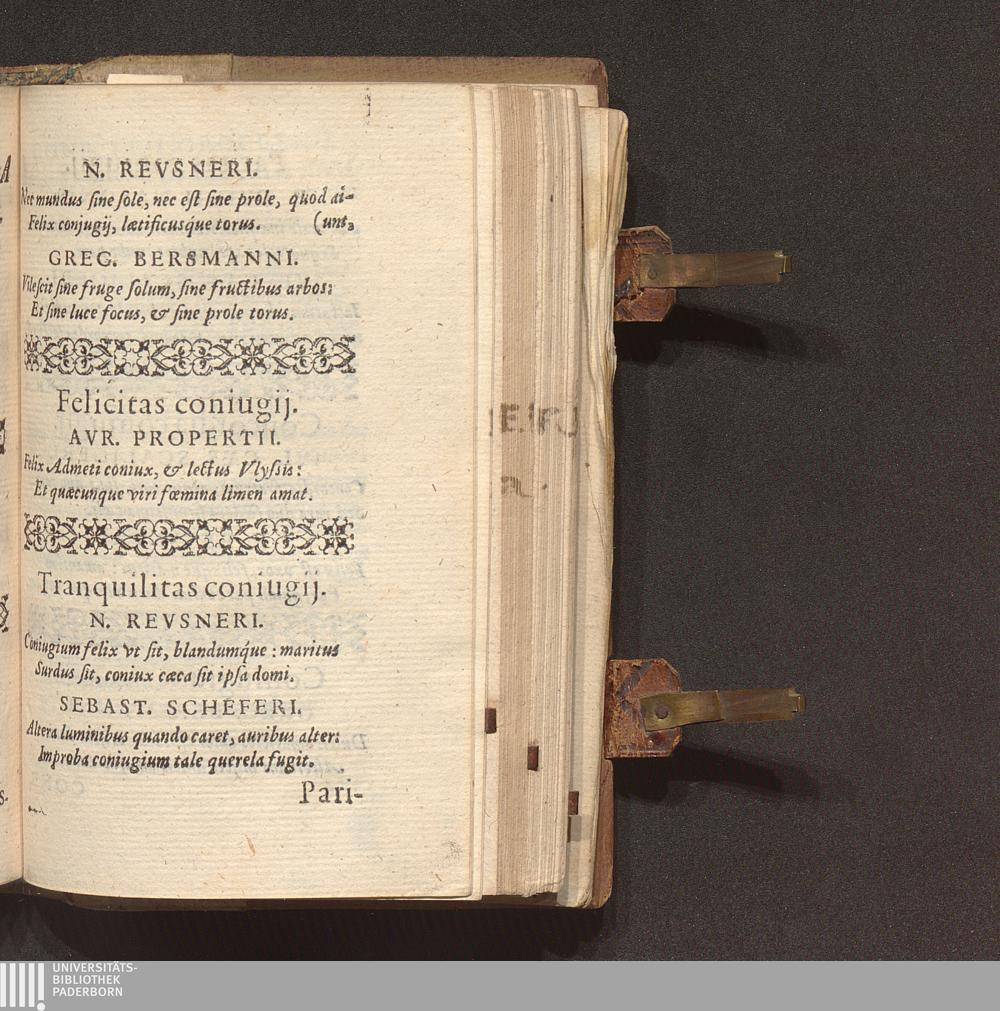 N. REVSNERI.
Nec mundus ſine ſole, nec eſt ſine prole, quod ai-
Felix conjugij, lætificusq́ue torus. (unt,
GREG. BERSMANNI.
Vileſcit ſine fruge ſolum, ſine fructibus arbos:
Et ſine luce focus, & ſine prole torus.
Felicitas coniugij.
AVR. PROPERTII.
Felix Admeti coniux, & lectus Vlyßis:
Et quæcunque viri fœmina limen amat.
Tranquilitas coniugij.
N. REVSNERI.
Coniugium felix vt ſit, blandumq́ue: maritus
Surdus ſit, coniux cæca ſit ipſa domi.
SEBAST. SCHEFERI.
Altera luminibus quando caret, auribus alter:
Improba coniugium tale querela fugit.
Pari-
UNIVERSITÄTS-
BIBLIOTHEK
PADERBORN